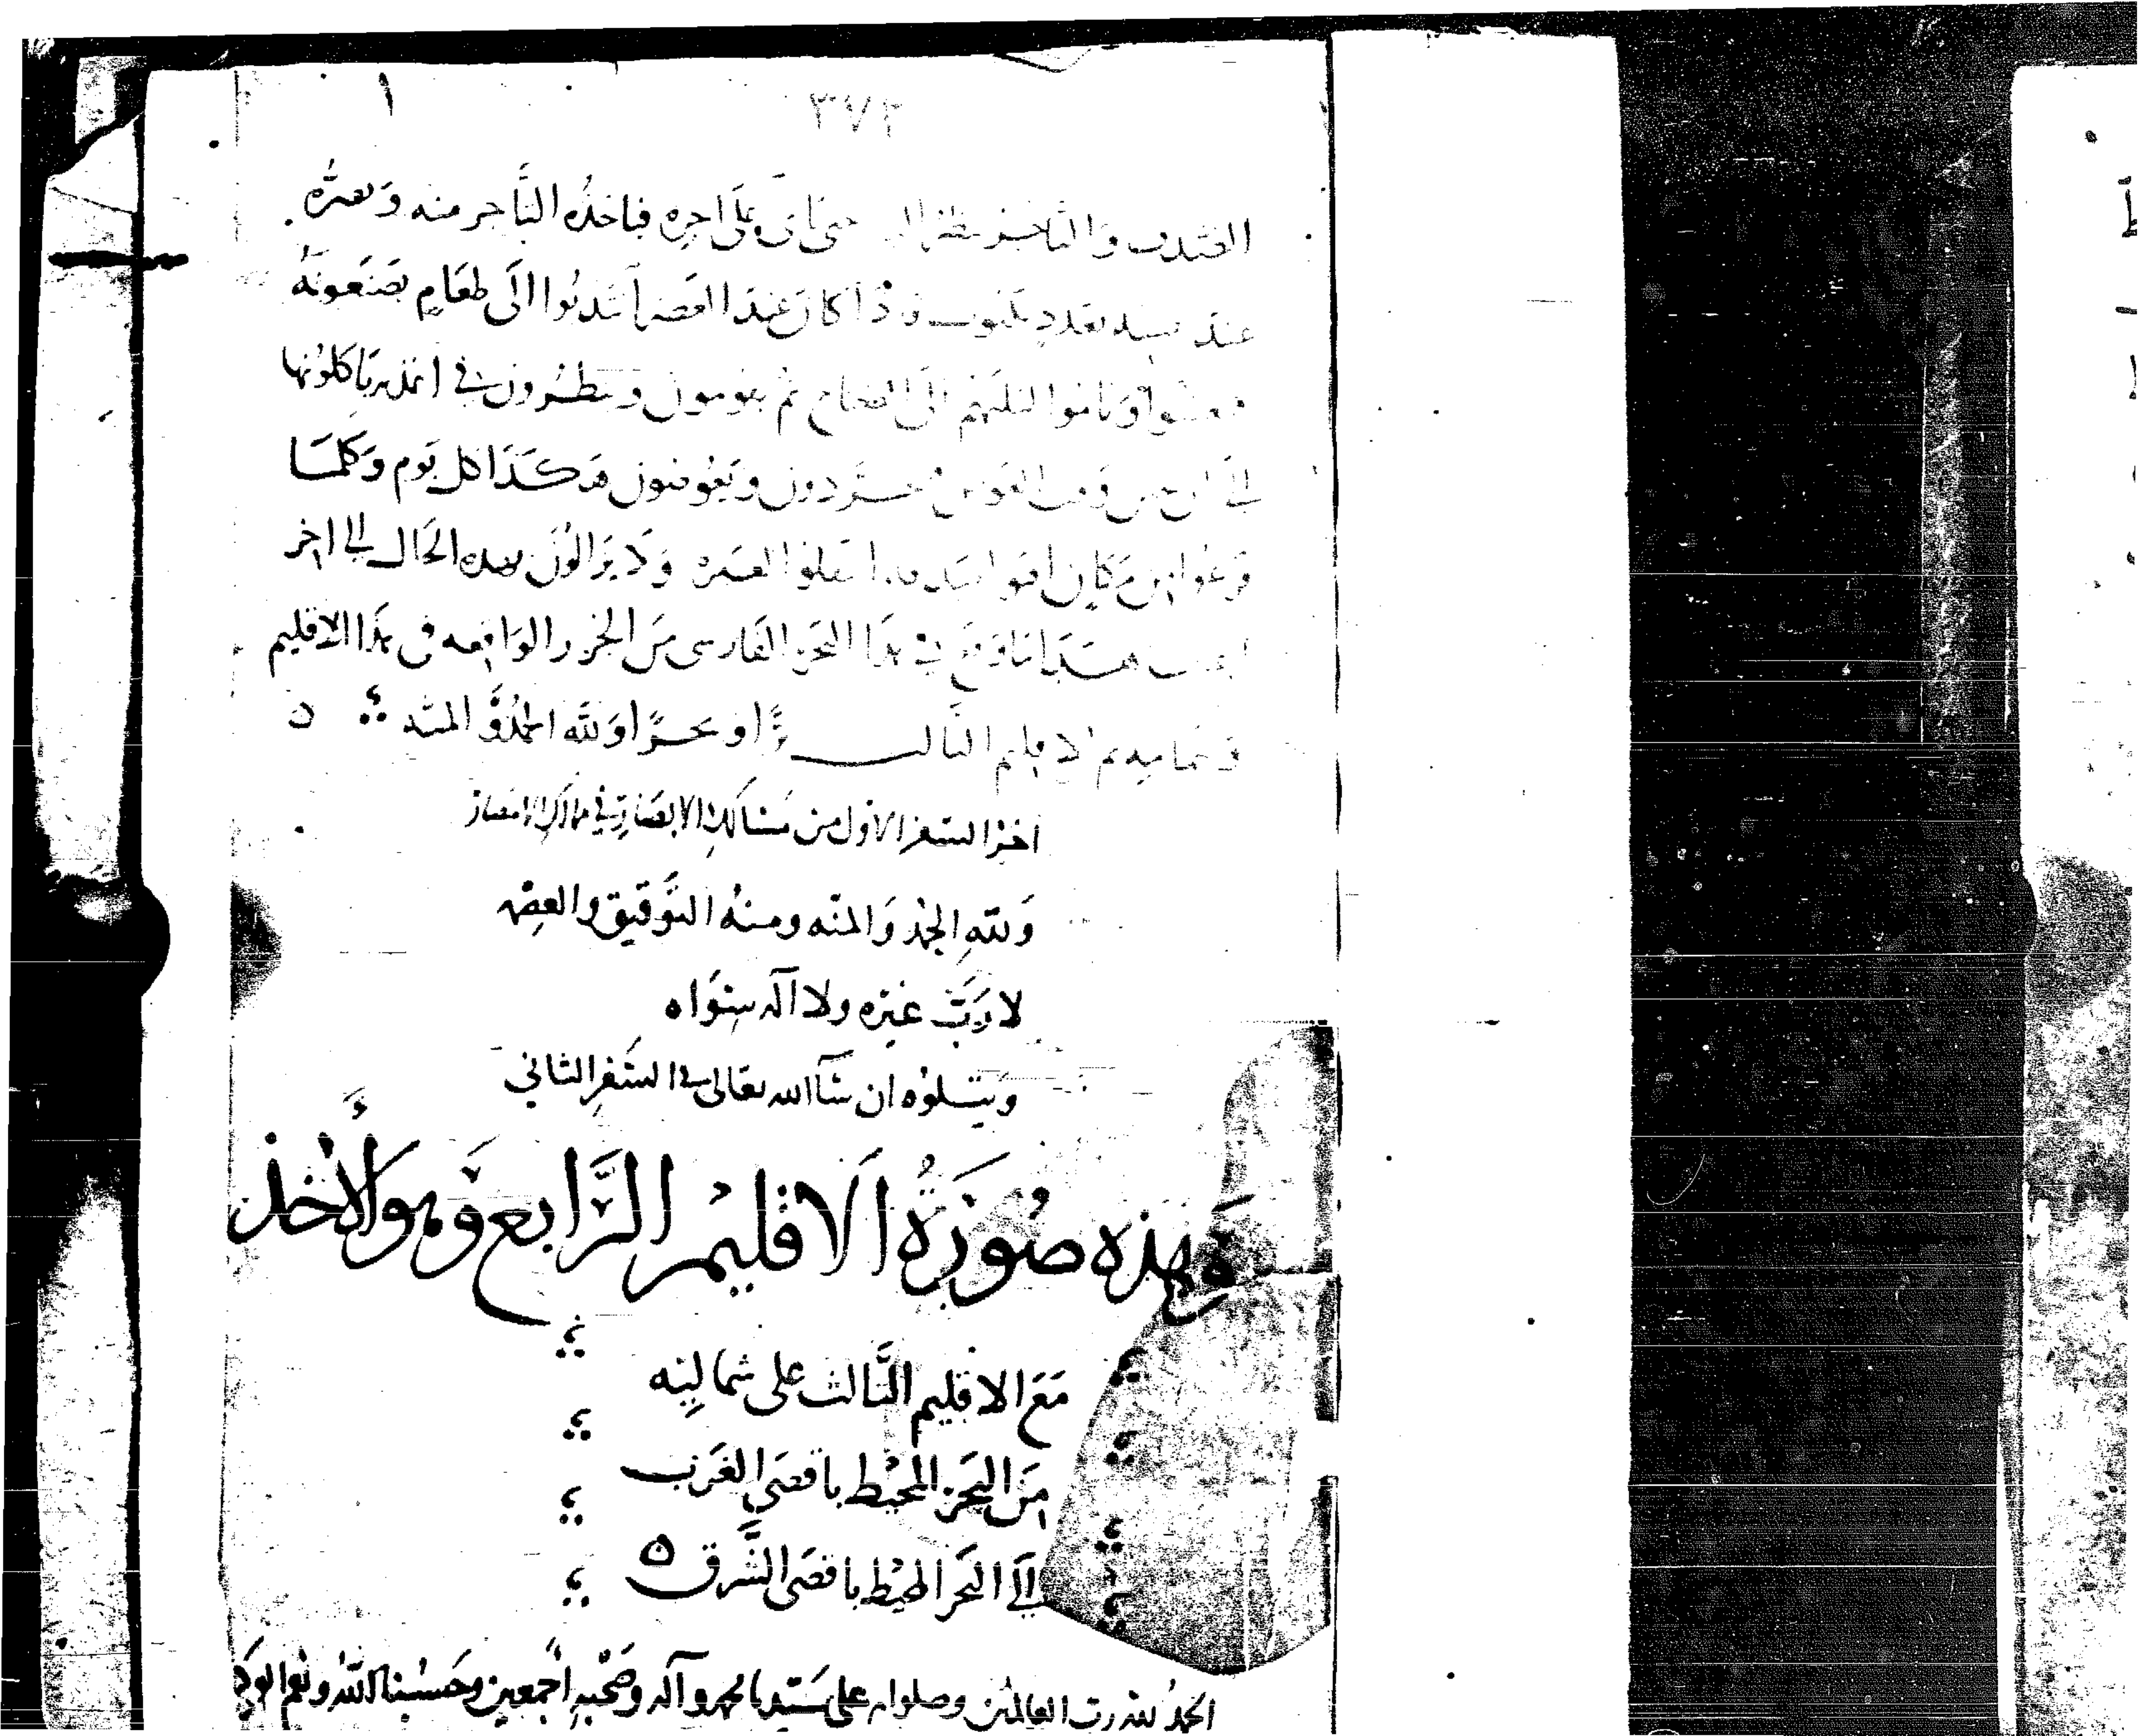 ١
٣٧٢
الصدف والتاجر ينظر اليه حتى ياتى على اخره فياخذه التاجر منه ويصره
عند بعدد مكتوب فاذا كان عند العصر انتدبوا الى طعام يصنعونه
وناموا ليلتهم الى الصباح ثم يقومون وينظرون فى اغذية ياكلونها
الى ان وقت الغوص فيتجردون ويغوصون هكذا كل يوم وكلما
فرغوا من مكان انتقلوا لغيره ولا يزالون بهذه الحال الى اخر
ما وقع فى هذا البحر الفارسى من الجزر الواقعه فى هذا الاقليم
تم الاقليم الثالث برا وبحرا ولله الحمد والمنه
اخر السفر الاول من مسالك الابصار في ممالك الامصار
ولله الحمد والمنه ومنه التوفيق والعصمه
لا رب غيره ولا اله سواه
ويتلوه ان شآ الله تعالى في السفر الثاني
وهذه صورة الاقليم الرابع وهو الاخذ
مع الاقليم الثالث على شماليه
من البحر المحيط باقصى الغرب
الى البحر المحيط باقصى الشرق
الحمد لله رب العالمين وصلواته على سيدنا محمد وآله وصحبه اجمعين وحسبنا الله ونعم الوكيل